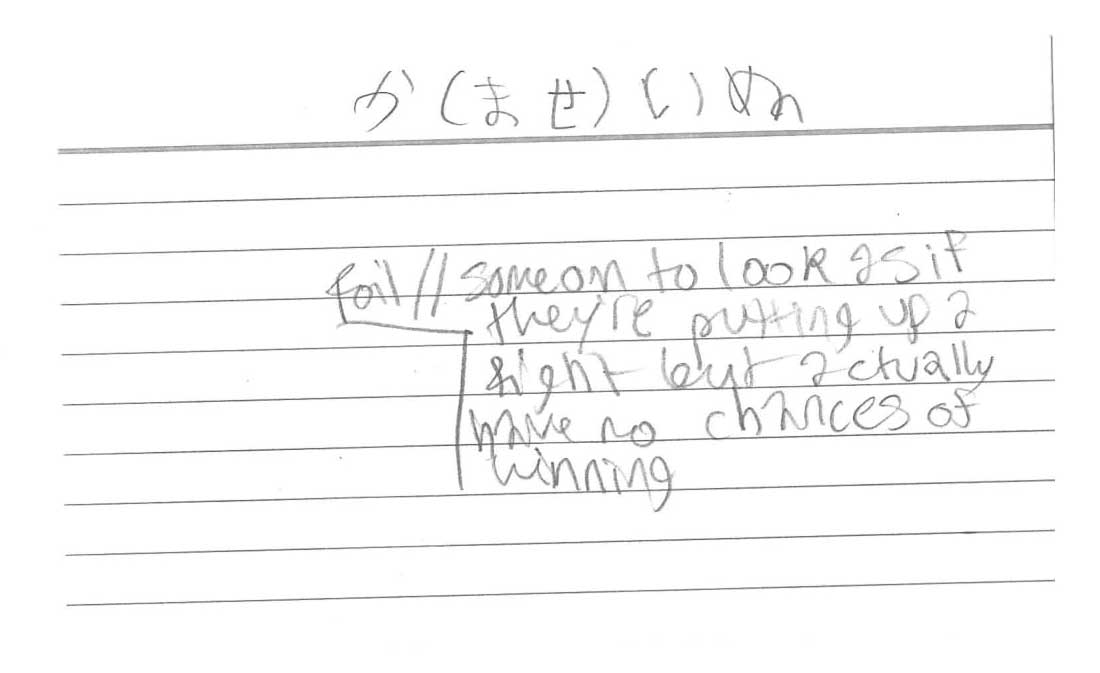 か(ませ)いぬ
foil// someon to look as if
they're putting up a
fight but actually
have no chances of
winning